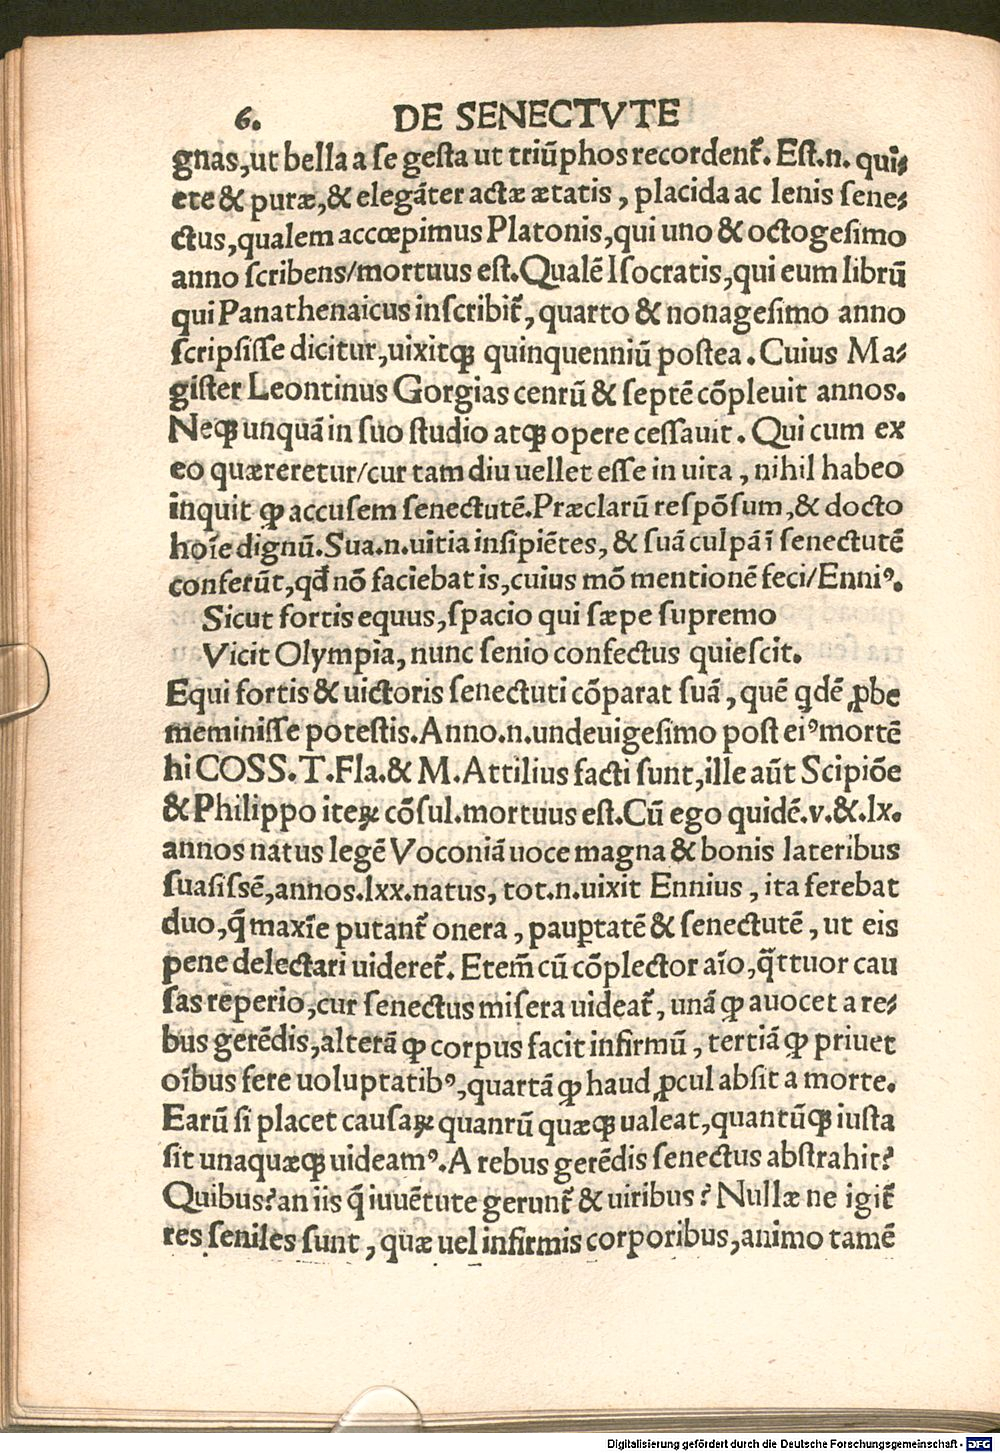 6. DE SENECTVTE
gnas,ut bella a se gesta ut triũphos recordent᷑. Est.n. qui⸗
ete & puræ,& elegãter actæ ætatis, placida ac lenis sene⸗
ctus,qualem accœpimus Platonis,qui uno & octogesimo
anno scribens/mortuus est.Qualẽ Isocratis,qui eum librũ
qui Panathenaicus inscribit᷑, quarto & nonagesimo anno
scripsisse dicitur,uixitqꝫ quinquenniũ postea. Cuius Ma⸗
gister Leontinus Gorgias centũ & septẽ cõpleuit annos.
Neqꝫ unquã in suo studio atqꝫ opere cessauit. Qui cum ex
eo quæreretur/cur tam diu uellet esse in uita, nihil habeo
inquit ꝙ accusem senectutẽ.Præclarũ respõsum,& docto
hoĩe dignũ.Sua.n.uitia insipiẽtes, & suã culpã ĩ senectutẽ
conferũt,qđ nõ faciebat is,cuius mõ mentionẽ feci/Enniꝰ.
Sicut fortis equus,spacio qui sæpe supremo
Vicit Olympia, nunc senio confectus quiescit.
Equi fortis & uictoris senectuti cõparat suã, quẽ qͥdẽ ꝓbe
meminisse potestis.Anno.n.undeuigesimo post eiꝰ mortẽ
hi COSS. T. Fla.& M. Attilius facti sunt,ille aũt Scipiõe
& Philippo iteꝝ cõsul.mortuus est.Cũ ego quidẽ.v.&.lx.
annos natus legẽ Voconiã uoce magna & bonis lateribus
suasissẽ,annos.lxx.natus, tot.n.uixit Ennius, ita ferebat
duo,q̃ maxĩe putant᷑ onera, paup̱tatẽ & senectutẽ, ut eis
pene delectari uideret᷑. Etem̃ cũ cõplector aĩo,q̃ttuor cau
sas reperio,cur senectus misera uideat᷑, unã ꝙ auocet a re⸗
bus gerẽdis,alterã ꝙ corpus facit infirmũ, tertiã ꝙ priuet
oĩbus fere uoluptatibꝰ,quartã ꝙ haud ꝓcul absit a morte.
Earũ si placet causaꝝ quanrũ quæqꝫ ualeat,quantũqꝫ iusta
sit unaquæqꝫ uideamꝰ. A rebus gerẽdis senectus abstrahit?
Quibus?an iis q̃ iuuẽtute gerunt᷑ & uiribus? Nullæ ne igit᷑
res seniles sunt, quæ uel infirmis corporibus,animo tamẽ
Digitalisierung gefördert durch die Deutsche Forschungsgemeinschaft - DFG